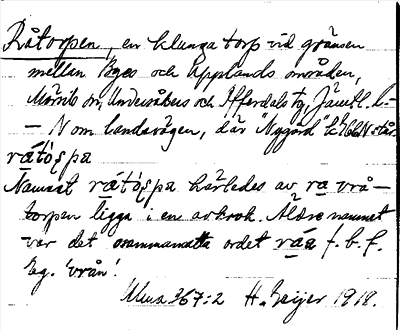 Råtorpen, en klunga torp vid gränsen
mellan Byes och Upplands områden,
Mörsils sn, Undersåkers och Offerdals tg, Jämtl. l.
– N om landsvägen, där "Nygård" står
råtö̀rpa
Namnet råtö̀rpa härledes av ra vrå–
torpen ligga i en avkrok. Äldre namnet
var det osammansatta ordet råa f. b. f.
Eg. 'vrån'.
Uma 367:2 H. Geijer 1918.